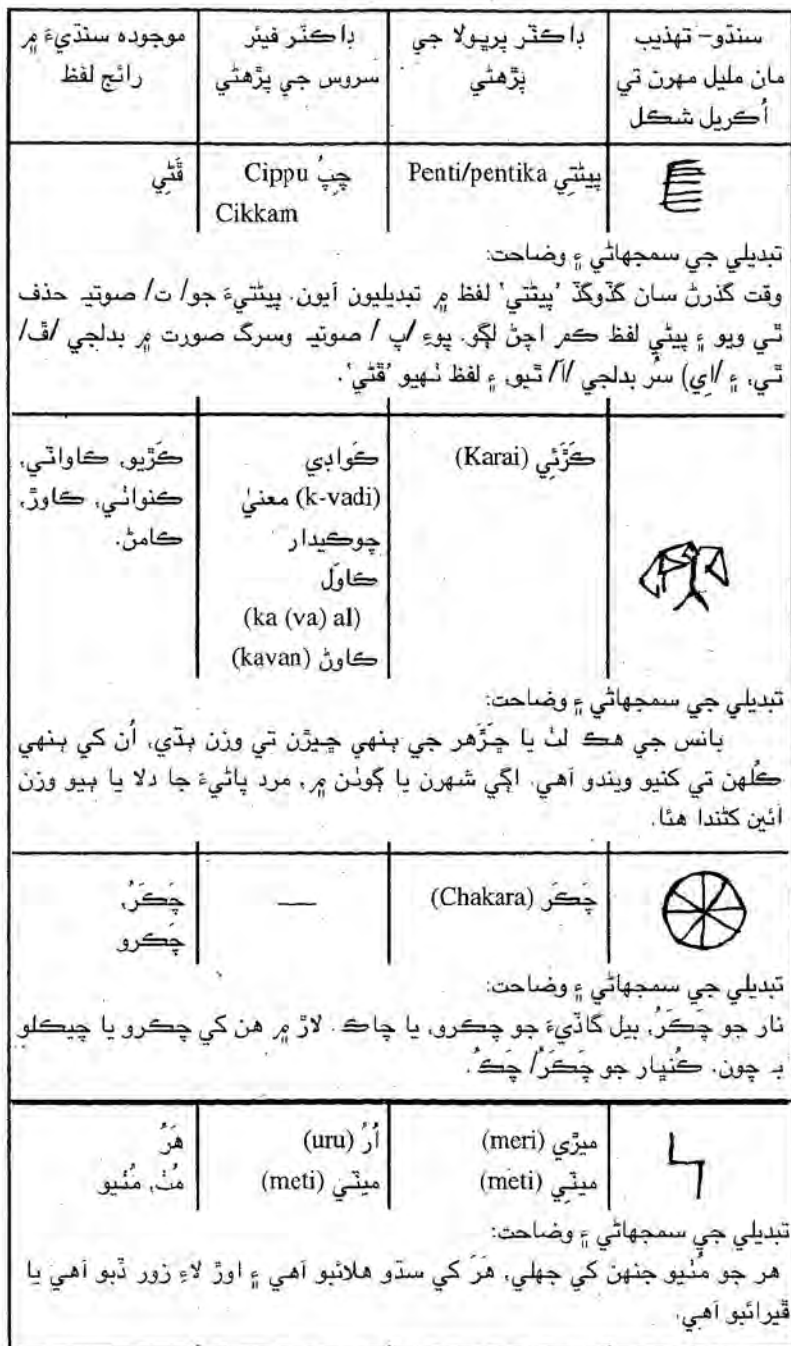 سنڌو– تهذيب
مان مليل مهرن تي
اُڪريل شڪل
ڊاڪٽر پرپولا جي
پڙهڻي
ڊاڪٽر فيئر
سروس جي پڙهڻي
موجوده سنڌيءَ ۾
رائج لفظ
پيڻتِي Penti/pentika
چِپُ Cippu
Cikkam
ڦَڻِي
تبديلي جي سمجهاڻي ۽ وضاحت:
وقت گذرڻ سان گڏوگڏ 'پيڻتي' لفظ ۾ تبديليون آيون. پيڻتيءَ جو/ ت/ صوتيه حذف
ٿي ويو ۽ پيڻي لفظ ڪم اچڻ لڳو. پوءِ /پ / صوتيه وسرگ صورت ۾ بدلجي /ڦ/
ٿي، ۽ /اِي) سُر بدلجي /اَ/ ٿيو، ۽ لفظ ٺهيو 'ڦَڻي'.
ڪَڙَئِي (Karai)
ڪَوادِي
(k-vadi) معنيٰ
چوڪيدار
ڪاوَل
(ka (va) al)
ڪاوڻ (kavan)
ڪَڙيو، ڪاواٽي،
ڪنواٺي، ڪاوڙ،
ڪامڻ.
تبديلي جي سمجهاڻي ۽ وضاحت:
بانس جي هڪ لٺ يا چَڙهر جي ٻنهي ڇيڙن تي وزن ٻڌي، اُن کي ٻنهي
ڪُلهن تي کنيو ويندو آهي. اڳي شهرن يا ڳوٺن ۾، مرد پاڻيءَ جا دلا يا ٻيو وزن
ائين کڻندا هئا.
چَڪَر (Chakara)
—
چَڪَرُ،
چَڪرو
تبديلي جي سمجهاڻي ۽ وضاحت:
نار جو چَڪَرُ، بيل گاڏيءَ جو چڪرو، يا چاڪ. لاڙ ۾ هن کي چڪرو يا چيڪلو
به چون. ڪُنڀار جو چَڪَرُ/ چَڪُ.
ميڙي (meri)
ميٽِي (meti)
اُرُ (uru)
ميٽَي (meti)
هَرُ
مُٺ، مُٺيو
تبديلي جي سمجهاڻي ۽ وضاحت:
هر جو مُٺيو جنهن کي جهلي، هَرَ کي سڌو هلائبو آهي ۽ اوڙ لاءِ زور ڏبو آهي يا
ڦيرائبو آهي.